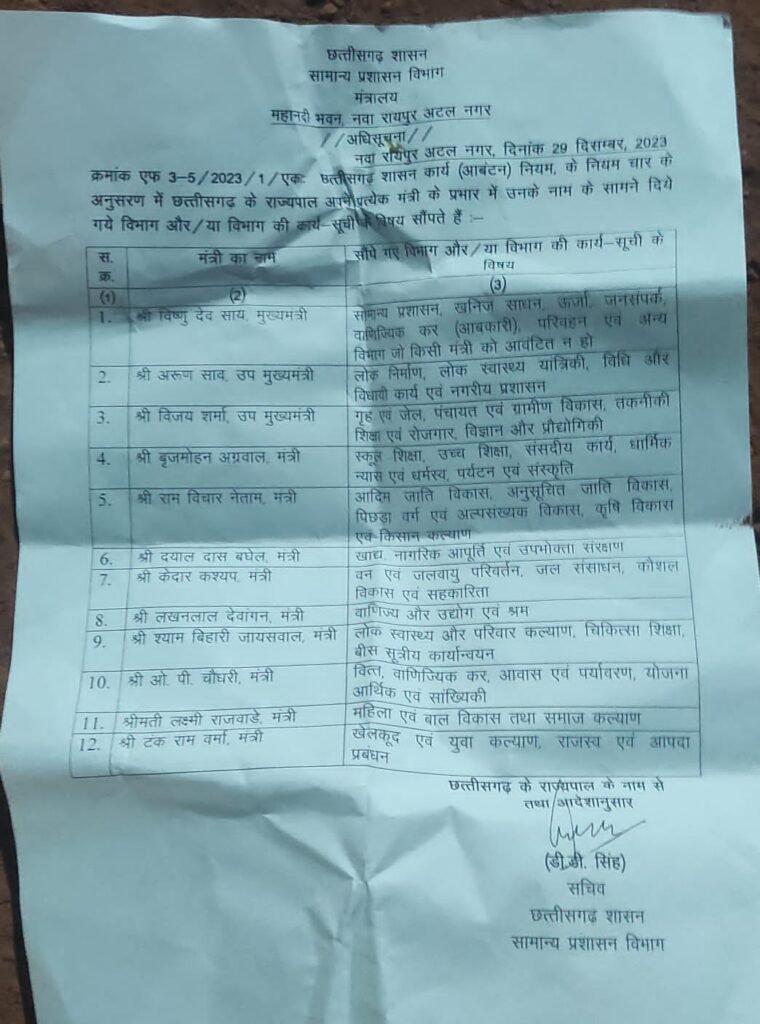 छत्तीसगढ़ शासन
सामान्य प्रशासन विभाग
मंत्रालय
महानदी भवन, नवा रायपुर अटल नगर
//अधिसूचना//
नवा रायपुर अटल नगर, दिनांक 29 दिसम्बर, 2023
क्रमांक एफ 3-5/2023/1/एकः छत्तीसगढ़ शासन कार्य (आबंटन) नियम, के नियम चार के
अनुसरण में छत्तीसगढ़ के राज्यपाल अपने प्रत्येक मंत्री के प्रभार में उनके नाम के सामने दिये
गये विभाग और/या विभाग की कार्य-सूची के विषय सौंपते हैं :-
स. क्र. मंत्री का नाम सौंपे गए विभाग और/या विभाग की कार्य-सूची के
विषय
(1) (2) (3)
1. श्री विष्णु देव साय, मुख्यमंत्री सामान्य प्रशासन, खनिज साधन, ऊर्जा, जनसंपर्क,
वाणिज्यिक कर (आबकारी), परिवहन एवं अन्य
विभाग जो किसी मंत्री को आवंटित न हो
2. श्री अरूण साव, उप मुख्यमंत्री लोक निर्माण, लोक स्वास्थ्य यांत्रिकी, विधि और
विधायी कार्य एवं नगरीय प्रशासन
3. श्री विजय शर्मा, उप मुख्यमंत्री गृह एवं जेल, पंचायत एवं ग्रामीण विकास, तकनीकी
शिक्षा एवं रोजगार, विज्ञान और प्रौद्योगिकी
4. श्री बृजमोहन अग्रवाल, मंत्री स्कूल शिक्षा, उच्च शिक्षा, संसदीय कार्य, धार्मिक
न्यास एवं धर्मस्व, पर्यटन एवं संस्कृति
5. श्री राम विचार नेताम, मंत्री आदिम जाति विकास, अनुसूचित जाति विकास,
पिछड़ा वर्ग एवं अल्पसंख्यक विकास, कृषि विकास
एवं किसान कल्याण
6. श्री दयाल दास बघेल, मंत्री खाद्य, नागरिक आपूर्ति एवं उपभोक्ता संरक्षण
7. श्री केदार कश्यप, मंत्री वन एवं जलवायु परिवर्तन, जल संसाधन, कौशल
विकास एवं सहकारिता
8. श्री लखनलाल देवांगन, मंत्री वाणिज्य और उद्योग एवं श्रम
9. श्री श्याम बिहारी जायसवाल, मंत्री लोक स्वास्थ्य और परिवार कल्याण, चिकित्सा शिक्षा,
बीस सूत्रीय कार्यान्वयन
10. श्री ओ. पी. चौधरी, मंत्री वित्त, वाणिज्यिक कर, आवास एवं पर्यावरण, योजना
आर्थिक एवं सांख्यिकी
11. श्रीमती लक्ष्मी राजवाडे, मंत्री महिला एवं बाल विकास तथा समाज कल्याण
12. श्री टंक राम वर्मा, मंत्री खेलकूद एवं युवा कल्याण, राजस्व एवं आपदा
प्रबंधन
छत्तीसगढ़ के राज्यपाल के नाम से
तथा आदेशानुसार
(डी.डी. सिंह)
सचिव
छत्तीसगढ़ शासन
सामान्य प्रशासन विभाग